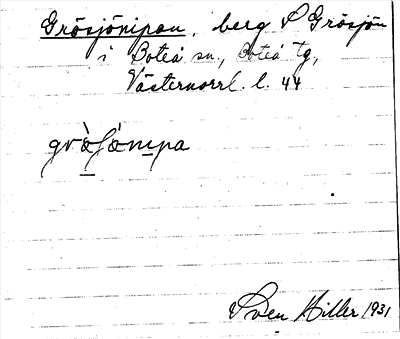 Grösjönipan, berg S Grösjön
i Boteå sn, Boteå tg,
Västernorrl. l. 44
Sven Hiller 1931